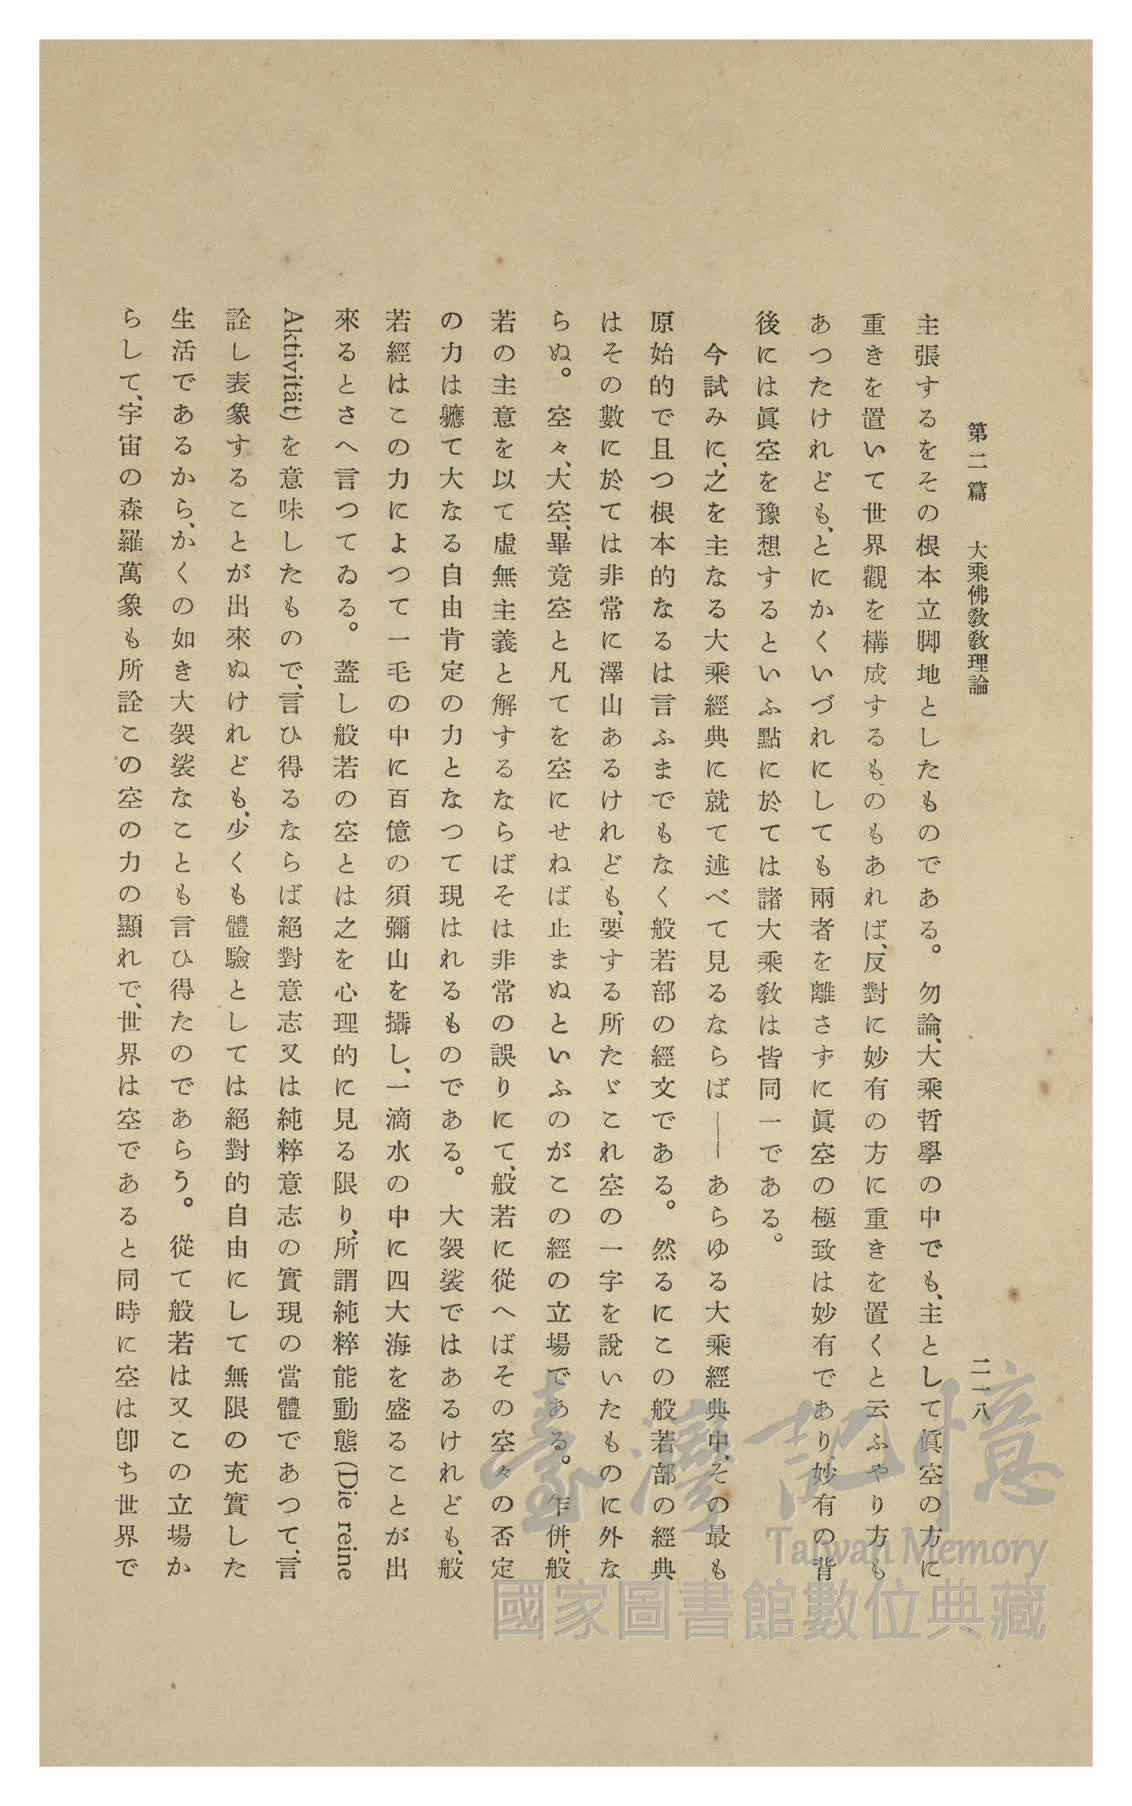 第二篇　大乘佛敎敎理論
二一八
主張するをその根本立脚地としたものである。勿論、大乘哲學の中でも、主として眞空の方に
重きを置いて世界觀を構成するものもあれば、反對に妙有の方に重きを置くと云ふやり方も
あつたけれども、とにかくいづれにしても兩者を離さずに眞空の極致は妙有であり、妙有の背
後には眞空を豫想するといふ點に於ては諸大乘敎は皆同一である。
今試みに、之を主なる大乘經典に就て述べて見るならば――あらゆる大乘經典中、その最も
原始的で且つ根本的なるは言ふまでもなく般若部の經文である。然るにこの般若部の經典
はその數に於ては非常に澤山あるけれども、要する所たゞこれ空の一字を說いたものに外な
らぬ。空々、大空、畢竟空と凡てを空にせねば止まぬといふのがこの經の立場である。乍併、般
若の主意を以て虛無主義と解するならばそは非常の誤りにて、般若に從へばその空々の否定
の力は軈て大なる自由肯定の力となつて現はれるものである。大袈裟ではあるけれども、般
若經はこの力によつて一毛の中に百億の須彌山を攝し、一滴水の中に四大海を盛ることが出
來るとさへ言つてゐる。蓋し般若の空とは之を心理的に見る限り、所謂純粹能動態(Die reine
Aktivität)を意味したもので、言ひ得るならば絕對意志又は純粹意志の實現の當體であつて、言
詮し表象することが出來ぬけれども、少くも體驗としては絕對的自由にして無限の充實した
生活であるから、かくの如き大袈裟なことも言ひ得たのであらう。從て般若は又この立場か
らして、宇宙の森羅萬象も所詮この空の力の顯れで、世界は空であると同時に空は卽ち世界で
臺灣記憶
Taiwan Memory
國家圖書館數位典藏